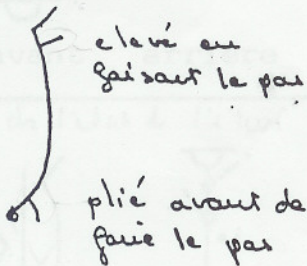 elevé en
faisant le pas
plié avant de
faire le pas